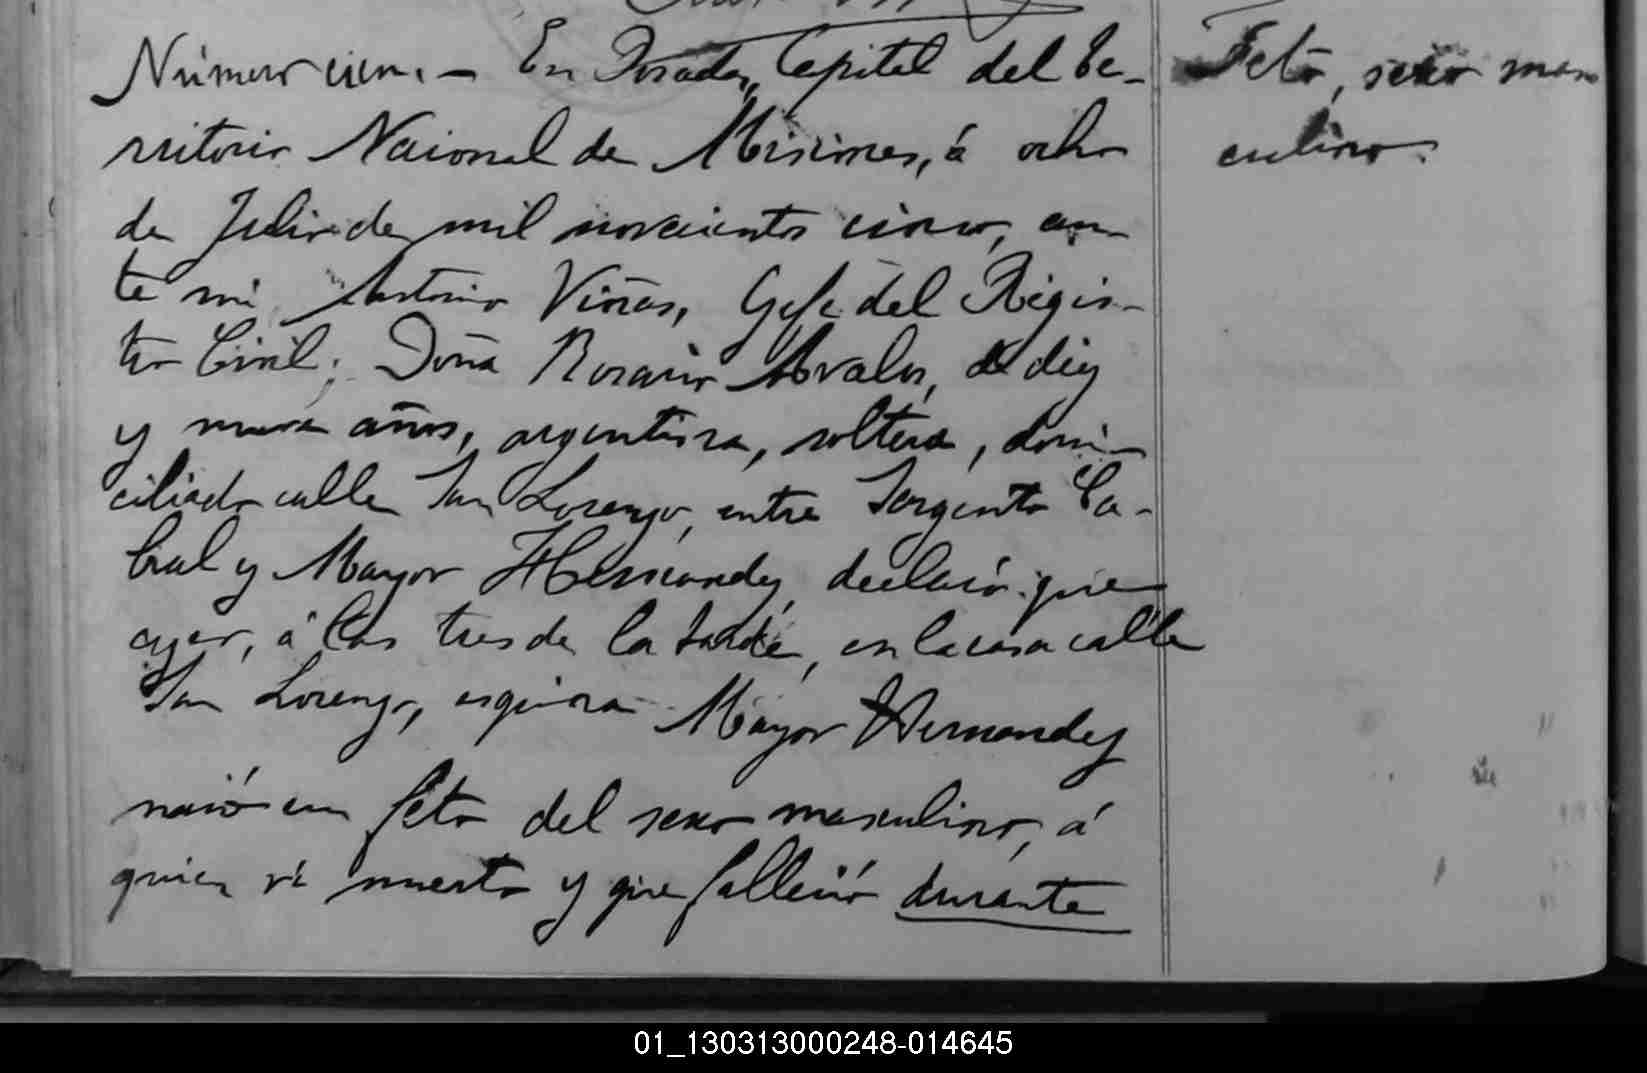 Número cien. — En Posadas, Capital del Te-
rritorio Nacional de Misiones, á ocho
de Julio de mil novecientos cinco, an-
te mi Antonio Viñas, Gefe del Regis-
tro Civil; Doña Rosario Avalos, de diez
y nueve años, argentina, soltera, domi-
ciliada calle San Lorenzo, entre Sargento Ca-
bral y Mayor Hernandez, declaró: que
ayer, á las tres de la tarde, en la casa calle
San Lorenzo, esquina Mayor Hernandez
nació un feto del sexo masculino, á
quien ví muerto y que falleció durante
Feto, sexo mas
culino.
01_130313000248-014645